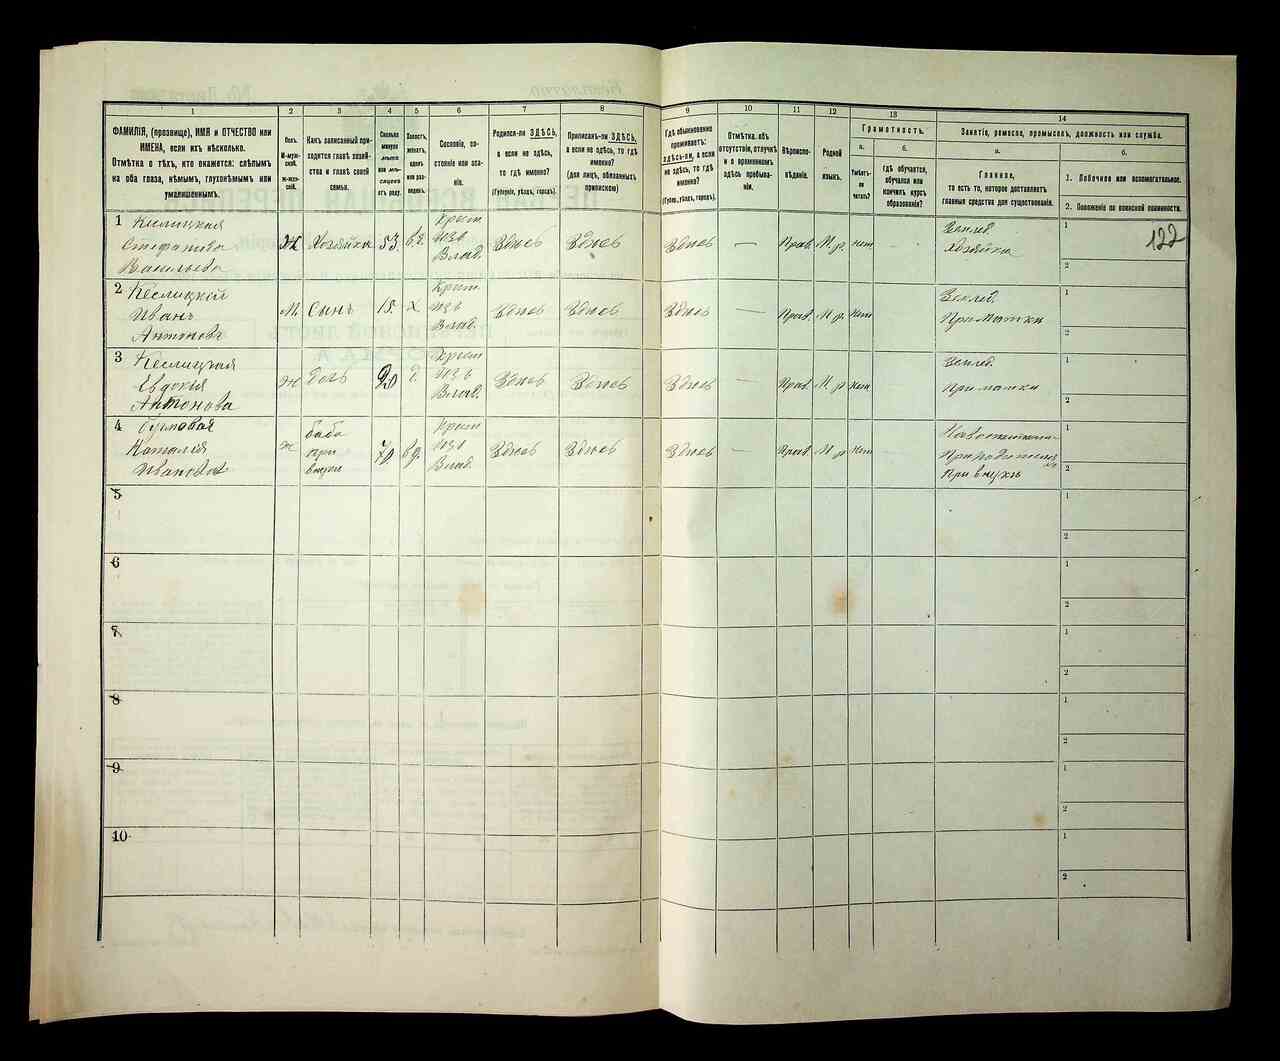 1
2
3
4
5
6
7
8
9
10
11
12
13
14
ФАМИЛІЯ, (прозвище), ИМЯ и ОТЧЕСТВО или
ИМЕНА, если ихъ нѣсколько.
Отмѣтка о тѣхъ, кто окажется: слѣпымъ
на оба глаза, нѣмымъ, глухонѣмымъ или
умалишеннымъ.
Полъ.
М-муж-
ской.
Ж-жен-
скій.
Какъ записанный при-
ходится главѣ хозяй-
ства и главѣ своей
семьи.
Сколько
минуло
лѣтъ
или мѣ-
сяцевъ
отъ роду.
Холостъ,
женатъ,
вдовъ
или раз-
веденъ.
Сословіе, со-
стояніе или зва-
ніе.
Родился-ли ЗДѢСЬ,
а если не здѣсь,
то гдѣ именно?
(Губернія, уѣздъ, городъ).
Приписанъ-ли ЗДѢСЬ,
а если не здѣсь, то гдѣ
именно?
(для лицъ, обязанныхъ
припискою)
Гдѣ обыкновенно
проживаетъ:
здѣсь-ли, а если
не здѣсь, то гдѣ
именно?
(Губерн., уѣздъ, городъ).
Отмѣтка объ
отсутствіи, отлучкѣ
и о временномъ
здѣсь пребыва-
ніи.
Вѣроиспо-
вѣданіе.
Родной
языкъ.
Грамотность.
а.
б.
Умѣетъ-
ли
читать?
Гдѣ обучается,
обучался или
кончилъ курсъ
образованія?
Занятіе, ремесло, промыселъ, должность или служба.
а.
б.
Главное,
то есть то, которое доставляетъ
главныя средства для существованія.
1. Побочное или вспомогательное.
2. Положеніе по воинской повинности.
1 Кислицкая
Стефанида
Васильева
Ж Хозяйка 53 вд. Крест. изъ Влад. Здѣсь Здѣсь Здѣсь — Прав. М. р. нѣт
Землед.
Хозяйка
1
2
122
2 Кеслицкій
Иванъ
Антоновъ
М. Сынъ 15. Х Крест. изъ Влад. Здѣсь Здѣсь Здѣсь — Прав. М. р. нѣт
Землед.
При матки
1
2
3 Кеслицкая
Евдокія
Антонова
ж дочь 20 Крест. изъ Влад. Здѣсь Здѣсь Здѣсь — Прав. М. р. нѣт
Землед.
При матки
1
2
4
Наталія
Иванова
ж баба при внуки 70 вд. Крест. изъ Влад. Здѣсь Здѣсь Здѣсь — Прав. М. р. нѣт
При внукѣ
1
2
5
1
2
6
1
2
7
1
2
8
1
2
9
1
2
10
1
2